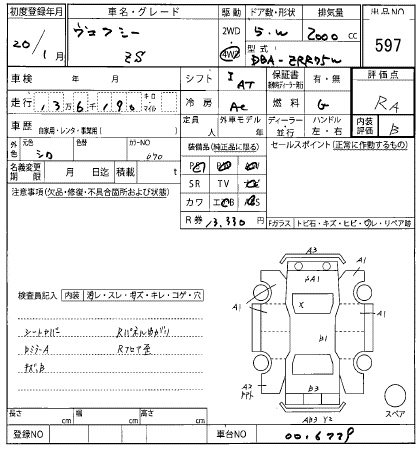 初度登録年月 車名・グレード 駆動 ドア数・形状 排気量 出品NO
20/1月 ヴォクシー ZS 2WD 4WD 5.W 2000cc 597
型式 DBA-ZRR75W
車検 年 月 シフト I AT 保証書 有・無 評価点
走行 13万6千190 キロ マイル 冷房 AC 燃料 G RA
車歴 自家用・レンタ・事業用( ) 定員 人 外車モデル 年 ディーラー・並行 ハンドル 左・右 内装評価 B
色 元色 シロ 色替 カラーNO 070 装備品(純正品に限る) セールスポイント(正常に作動するもの)
名義変更期限 月 日迄 積載 t
SR TV
注意事項(欠品・修復・不具合箇所および状態) カワ
R券 13,330円 Fガラス トビ石・キズ・ヒビ・ワレ・リペア跡
検査員記入 内装 汚レ・スレ・キズ・キレ・コゲ・穴
シートカバー
A3
A1
A1
X
A1
A1
B1
A2
B3
スペア
長さ cm 幅 cm 高さ cm
登録NO 車台NO 0016779